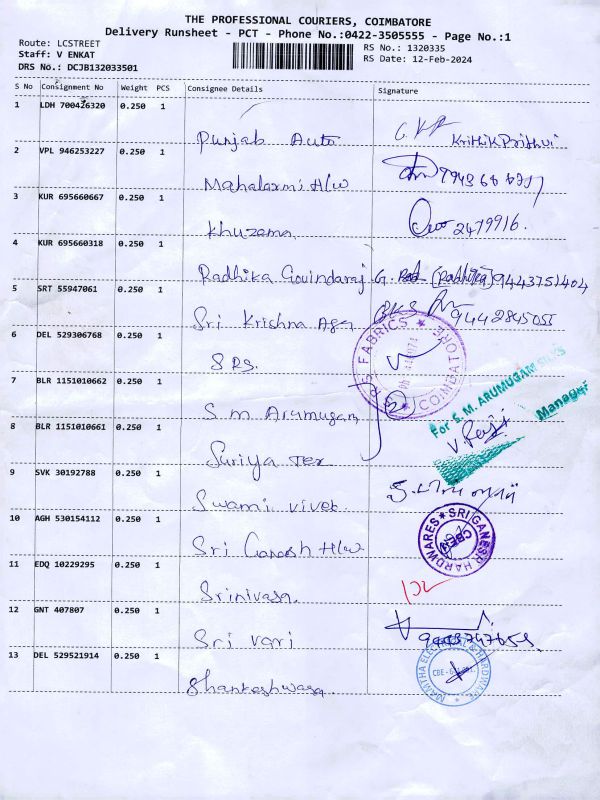 THE PROFESSIONAL COURIERS, COIMBATORE
Delivery Runsheet - PCT - Phone No.:0422-3505555 - Page No.:1
Route: LCSTREET
Staff: V ENKAT
DRS No.: DCJB132033501
RS No.: 1320335
RS Date: 12-Feb-2024
S No Consignment No Weight PCS Consignee Details Signature
1 LDH 700426320 0.250 1
Punjab Auto KrithikPrithvi
2 VPL 946253227 0.250 1
Mahalaxmi H/W
3 KUR 695660667 0.250 1
Khuzema 2479916.
4 KUR 695660318 0.250 1
Radhika Govindaraj G. (Radhika) 9443751404
5 SRT 55947061 0.250 1
Sri Krishna Age 9442845055
6 DEL 529306768 0.250 1
SRS. FABRICS ★ COIMBATORE
7 BLR 1151010662 0.250 1
S.M Arumugam 2
For S. M. ARUMUGAM SILKS
Manager
8 BLR 1151010661 0.250 1
Suriya Tex
9 SVK 30192788 0.250 1
Swami Vivek
10 AGH 530154112 0.250 1
Sri Ganesh H/W
★ SRI GANESH HARDWARES
11 EDQ 10229295 0.250 1
Srinivasa
12 GNT 407807 0.250 1
Sri vari
13 DEL 529521914 0.250 1
Shankeshwara
& HARDWARE